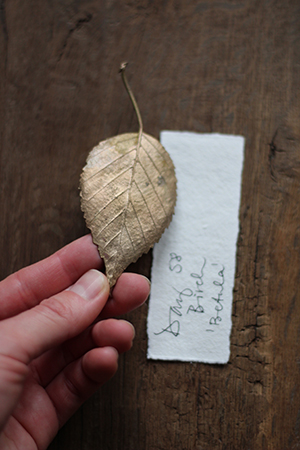 Day 58
Birch
'Betula'